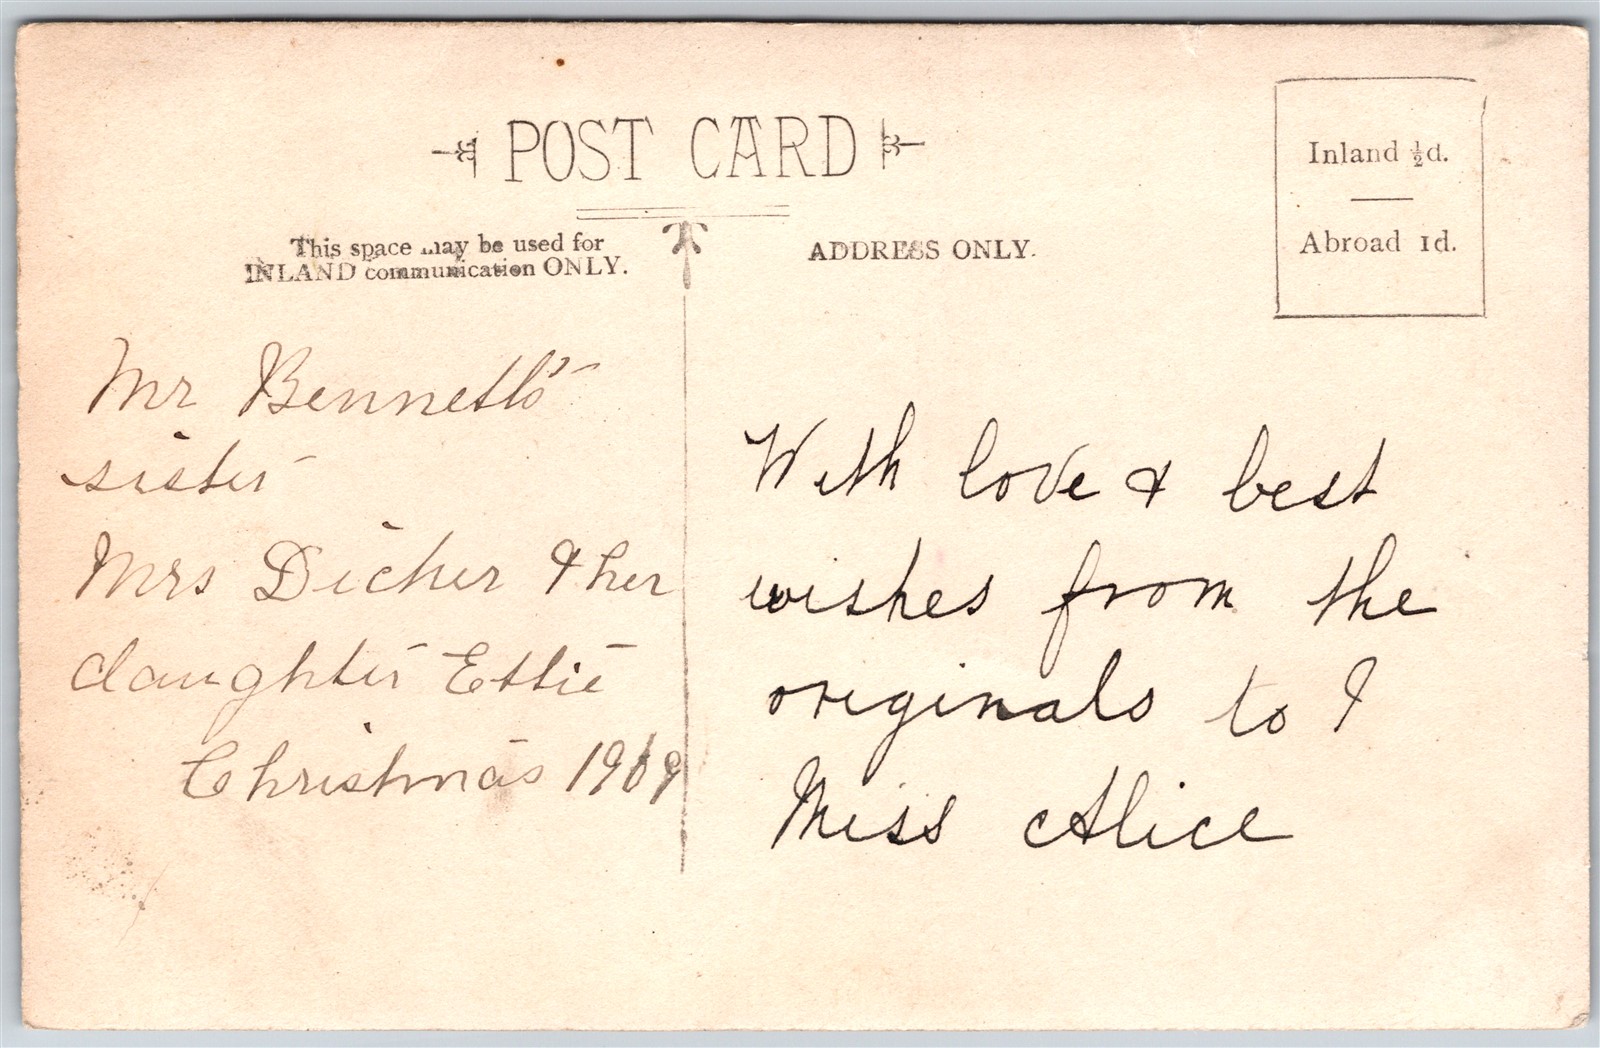 POST CARD
This space may be used for
INLAND communication ONLY.
ADDRESS ONLY.
Inland ½d.
Abroad 1d.
Mr Bennett's
sister
Mrs Dicher & her
daughter Ettie
Christmas 1909
With love & best
wishes from the
originals to
Miss Alice